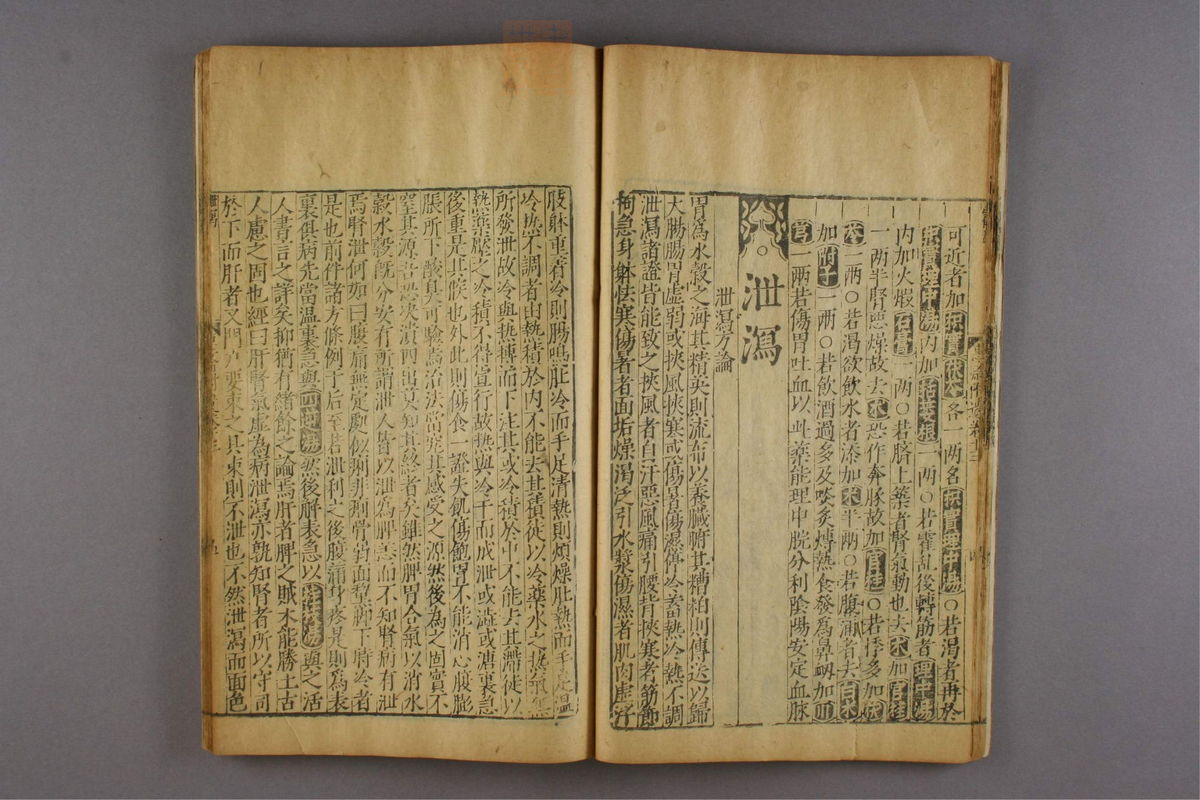 可近者加枳實茯苓各一兩名枳實理中湯○若渴者再於
枳實理中湯內加栝蔞根一兩○若霍亂後轉筋者理中湯
內加火煆石膏一兩○若臍上築者腎氣動也去朮加官桂
一兩半腎惡燥故去朮恐作奔豚故加官桂○若悸多加茯
苓一兩○若渴欲飲水者添加朮半兩○若腹滿者去白朮
加附子一兩○若飲酒過多及啖炙煿熱食發為鼻衂加川
芎一兩若傷胃吐血以此藥能理中脘分利陰陽安定血脉
泄瀉
泄瀉方論
胃為水穀之海其精英則流布以養臟腑其糟粕則傳送以歸
大腸腸胃虛弱或挾風挾寒或傷暑傷濕停冷蓄熱冷熱不調
泄瀉諸證皆能致之挾風者自汗惡風痛引腰背挾寒者筋節
拘急身躰怯寒傷暑者面垢燥渴泛引水漿傷濕者肌肉虛浮
肢躰重着冷則腸鳴肚冷而手足清熱則煩燥肚熱而手足溫
冷熱不調者由熱積於內不能去其積徒以冷藥水之熱氣無
所發泄故冷與熱摶而下注其或冷積於中不能去其滯徒以
熱藥壓之冷積不得宣行故熱與冷干而成泄或澁或溏裏急
後重是其候也外此則傷食一證失飢傷飽胃不能消心腹膨
脹所下酸臭可驗焉治法當究其感受之源然後為之固實不
窒其源
穀水穀既分安有所謂泄人皆以泄為脾恙而不知腎病有泄
焉腎泄何如曰腹痛無定處似痢非痢骨弱面黧脚下時冷者
是也前件諸方條例于后至若泄利之後腹痛身疼是則為表
裏俱病先當溫裏急與四逆湯然後解表急以桂枝湯與之活
人書言之詳矣抑猶有緒餘之論焉肝者脾之賊木能勝土古
人慮之固也經曰肝腎氣虛為病泄瀉亦孰知腎者所以守司
於下而肝者又門戶要束之具束則不泄也不然泄瀉而面色